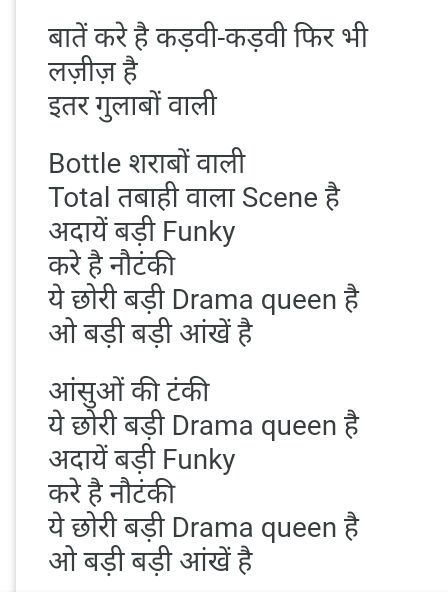 बातें करे है कड़वी-कड़वी फिर भी
लज़ीज़ है
इतर गुलाबों वाली
Bottle शराबों वाली
Total तबाही वाला Scene है
अदायें बड़ी Funky
करे है नौटंकी
ये छोरी बड़ी Drama queen है
ओ बड़ी बड़ी आंखें है
आंसुओं की टंकी
ये छोरी बड़ी Drama queen है
अदायें बड़ी Funky
करे है नौटंकी
ये छोरी बड़ी Drama queen है
ओ बड़ी बड़ी आंखें है